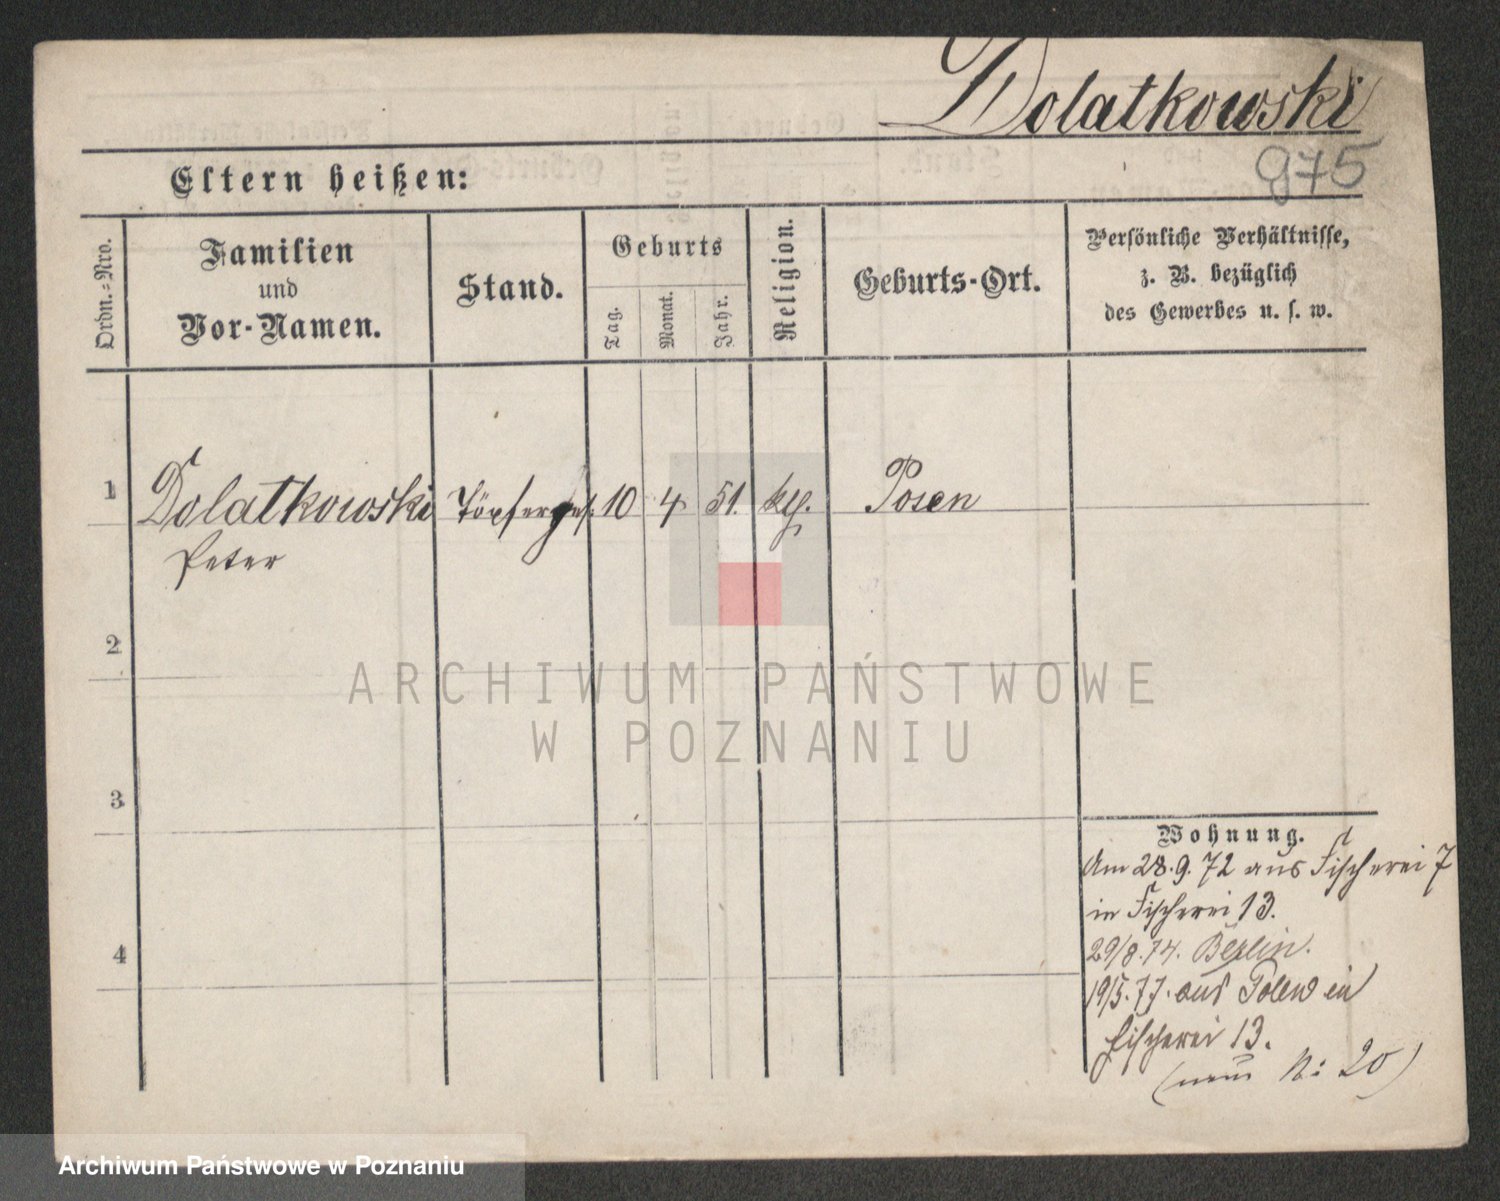 Dolatkowski
975
Eltern heißen:
Ordn.-Nro.
Familien
und
Vor-Namen.
Stand.
Geburts
Tag.
Monat.
Jahr.
Religion.
Geburts-Ort.
Persönliche Verhältnisse,
z. B. bezüglich
des Gewerbes u. s. w.
1 Dolatkowski Töpferges. 10 4 51. klg. Posen
Peter
2
3
4
Wohnung.
Am 28.9.72 aus Fischerei 7
in Fischerei 13.
29/8.74. Berlin.
19/5.77. aus Polen in
Fischerei 13.
(neue N: 20)
ARCHIWUM PAŃSTWOWE
W POZNANIU
Archiwum Państwowe w Poznaniu